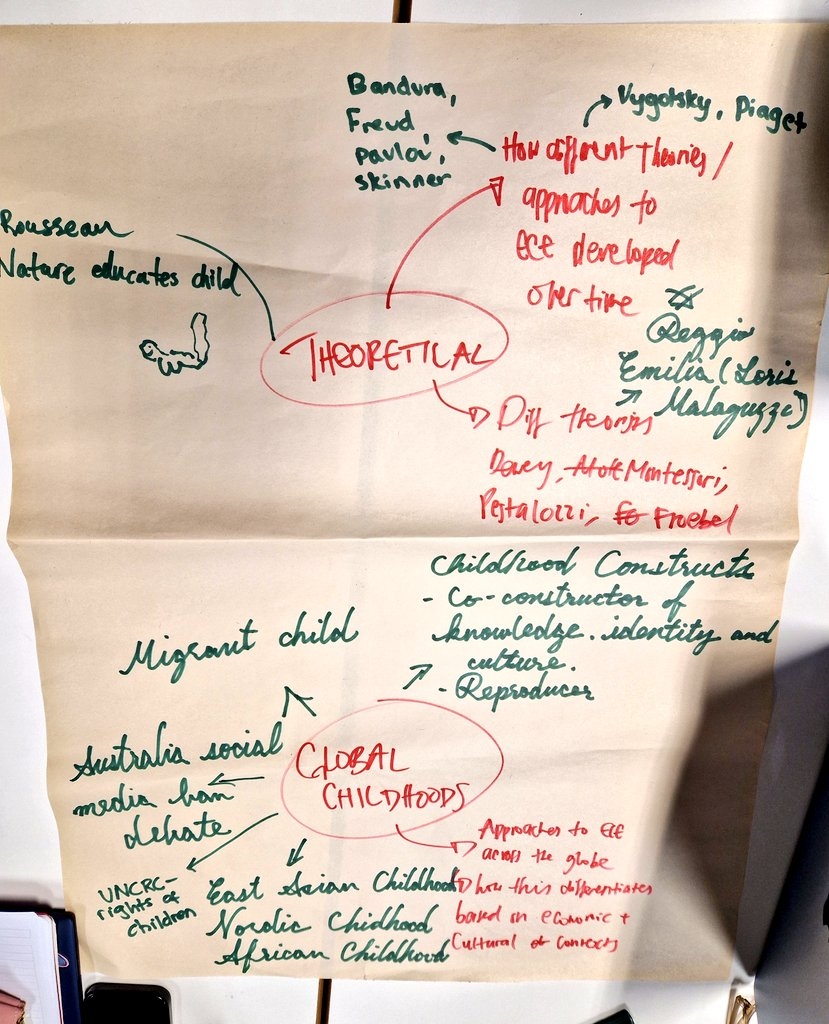 Bandura,
Freud,
Pavlov,
skinner
Vygotsky, Piaget
How different theories /
approaches to
ECE developed
over time
Rousseau
Nature educates child
THEORETICAL
Reggio
Emilia (Loris
Malaguzzi)
Diff theories
Dewey, Montessori,
Pestalozzi, Froebel
Childhood Constructs
- Co-constructor of
knowledge. identity and
culture.
- Reproducer
Migrant child
Australia social
media ban
debate
GLOBAL
CHILDHOODS
UNCRC-
rights of
children
East Asian Childhood
Nordic Chidhood
African Childhood
Approaches to ECE
across the globe
how this differentiates
based on economic +
Cultural contexts